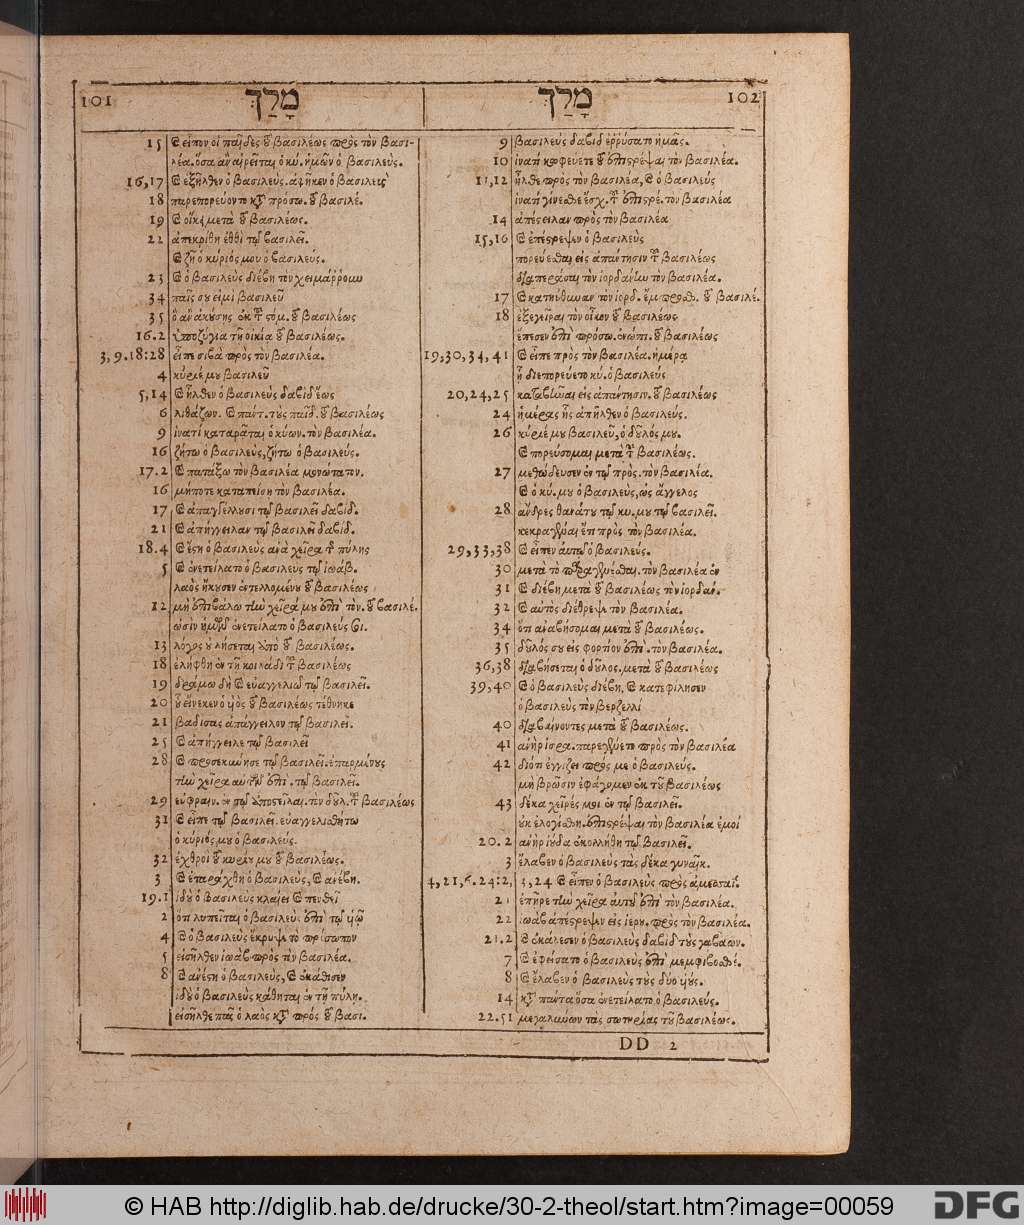 101
מָלַךְ
15 ϗ εἶπον οἱ παῖδες τοῦ βασιλέως πρὸς τὸν βασι-
λέα. ὅσα αἱρεῖται ὁ κύ. ἡμῶν ὁ βασιλεύς.
16,17 ϗ ἐξῆλθεν ὁ βασιλεύς. ἀφῆκεν ὁ βασιλεὺς
18 παρεπορεύοντο κατὰ πρόσω. τοῦ βασιλέ.
19 ϗ οἴκει μετὰ τοῦ βασιλέως.
22 ἀπεκρίθη ἐθθὶ τῷ βασιλεῖ.
ϗ ζῇ ὁ κύριός μου ὁ βασιλεύς.
23 ϗ ὁ βασιλεὺς διέβη τὸν χειμάῤῥουν
34 παῖς σου εἰμὶ βασιλεῦ
35 ὃ ἂν ἀκούσῃς ἐκ τοῦ στόμ. τοῦ βασιλέως
16.2 ὑποζύγια τῇ οἰκίᾳ τοῦ βασιλέως.
3,9.18:28 εἶπε σιβὰ πρὸς τὸν βασιλέα.
4 κύριέ μου βασιλεῦ
5,14 ϗ ἦλθεν ὁ βασιλεὺς δαβὶδ ἕως
6 λιθάζων. ϗ πάντ. τοὺς παῖδ. τοῦ βασιλέως
9 ἱνατί καταρᾶται ὁ κύων. τὸν βασιλέα.
16 ζήτω ὁ βασιλεὺς, ζήτω ὁ βασιλεύς.
17.2 ϗ πατάξω τὸν βασιλέα μονώτατον.
16 μήποτε καταπείσῃ τὸν βασιλέα.
17 ϗ ἀπαγγέλλουσι τῷ βασιλεῖ δαβίδ.
21 ϗ ἀπήγγειλαν τῷ βασιλεῖ δαβίδ.
18.4 ϗ ἔστη ὁ βασιλεὺς ἀνὰ χεῖρα τῆς πύλης
5 ϗ ἐνετείλατο ὁ βασιλεὺς τῷ ἰωάβ.
λαὸς ἤκουσεν ἐντελλομένου τοῦ βασιλέως
12 μὴ ἐπιβάλω τὴν χεῖρά μου ἐπὶ τὸν. τοῦ βασιλέ.
ὠσὶν ἡμῶν ἐνετείλατο ὁ βασιλεύς σι.
13 λόγος οὐ λήσεται ἀπὸ τοῦ βασιλέως.
18 ἐλήφθη ἐν τῇ κοιλάδι τοῦ βασιλέως
19 δράμω δὴ ϗ εὐαγγελιῶ τῷ βασιλεῖ.
20 οὗ εἵνεκεν ὁ υἱὸς τοῦ βασιλέως τέθνηκε
21 βαδίσας ἀπάγγειλον τῷ βασιλεῖ.
25 ϗ ἀπήγγειλε τῷ βασιλεῖ
28 ϗ προσεκύνησε τῷ βασιλεῖ. ἐπαρμένους
τὴν χεῖρα αὐτῶν ἐπὶ. τῷ βασιλεῖ.
29 εὐφραιν. ἐν τῷ ἀποστεῖλαι. τὸν δοῦλ. τοῦ βασιλέως
31 ϗ εἶπε τῷ βασιλεῖ. εὐαγγελισθήτω
ὁ κύριός μου ὁ βασιλεύς.
32 ἐχθροὶ τοῦ κυρίου μου τοῦ βασιλέως.
3 ϗ ἐταράχθη ὁ βασιλεὺς, ϗ ἀνέβη.
19.1 ἰδοὺ ὁ βασιλεὺς κλαίει ϗ πενθεῖ
2 ὅτι λυπεῖται ὁ βασιλεὺς ἐπὶ τῷ υἱῷ
4 ϗ ὁ βασιλεὺς ἔκρυψε τὸ πρόσωπον
5 εἰσῆλθεν ἰωὰβ πρὸς τὸν βασιλέα.
8 ϗ ἀνέστη ὁ βασιλεὺς, ϗ ἐκάθισεν
ἰδοὺ ὁ βασιλεὺς κάθηται ἐν τῇ πύλῃ.
εἰσῆλθε πᾶς ὁ λαὸς κατὰ πρός τοῦ βασι.
102
מָלַךְ
9 βασιλεὺς δαβὶδ ἐῤῥύσατο ἡμᾶς.
10 ἱνατί κωφεύετε τοῦ ἐπιστρέψαι τὸν βασιλέα.
11,12 ἦλθε πρὸς τὸν βασιλέα, ϗ ὁ βασιλεύς
ἱνατί γίνεσθε ἔσχ. τοῦ ἐπιστρέ. τὸν βασιλέα
14 ἀπέστειλαν πρὸς τὸν βασιλέα
15,16 ϗ ἐπέστρεψεν ὁ βασιλεὺς
πορεύεσθαι εἰς ἀπάντησιν τοῦ βασιλέως
διαπερᾶσαι τὸν ἰορδάνην τὸν βασιλέα.
17 ϗ κατηύθυναν τὸν ἰορδ. ἔμπροσθ. τοῦ βασιλέ.
18 ἐξεγεῖραι τὸν οἶκον τοῦ βασιλέως
ἔπεσεν ἐπὶ πρόσω. ἐνώπι. τοῦ βασιλέως
19,30,34,41 ϗ εἶπε πρὸς τὸν βασιλέα. ἡμέρᾳ
ᾗ διεπορεύετο κύ. ὁ βασιλεύς
20,24,25 καταβῆναι εἰς ἀπάντησιν. τοῦ βασιλέως
24 ἡμέρας ἧς ἀπῆλθεν ὁ βασιλεύς.
26 κύριέ μου βασιλεῦ, ὁ δοῦλός μου.
ϗ πορεύσομαι μετὰ τοῦ βασιλέως.
27 μεθώδευσεν ἐν τῷ πρὸς. τὸν βασιλέα.
ϗ ὁ κύ. μου ὁ βασιλεὺς, ὡς ἄγγελος
28 ἄνδρες θανάτου τῷ κυ. μου τῷ βασιλεῖ.
κεκραγέναι ἔτι πρὸς τὸν βασιλέα.
29,33,38 ϗ εἶπεν αὐτῷ ὁ βασιλεύς.
30 μετὰ τὸ παραγενέσθαι. τὸν βασιλέα ἐν
31 ϗ διέβη μετὰ τοῦ βασιλέως τὸν ἰορδάν.
32 ϗ αὐτὸς διέθρεψε τὸν βασιλέα.
34 ὅτι ἀναβήσομαι μετὰ τοῦ βασιλέως.
35 δοῦλός σου εἰς φορτίον ἐπὶ. τὸν βασιλέα.
36,38 διαβήσεται ὁ δοῦλος, μετὰ τοῦ βασιλέως
39,40 ϗ ὁ βασιλεὺς διέβη, ϗ κατεφίλησεν
ὁ βασιλεὺς τὸν βερζελλί
40 διαβαίνοντες μετὰ τοῦ βασιλέως.
41 ἀνὴρ ἰσρα. παρεγένετο πρὸς τὸν βασιλέα
42 διότι ἐγγίζει πρός με ὁ βασιλεύς.
μὴ βρῶσιν ἐφάγομεν ἐκ τοῦ βασιλέως
43 δέκα χεῖρές μοι ἐν τῷ βασιλεῖ.
οὐκ ἐλογίσθη. ἐπιστρέψαι τὸν βασιλέα ἐμοί
20.2 ἀνὴρ ἰούδα ἐκολλήθη τῷ βασιλεῖ.
3 ἔλαβεν ὁ βασιλεὺς τὰς δέκα γυναῖκ.
4,21,6.24:2, 3,24 ϗ εἶπεν ὁ βασιλεὺς πρὸς ἀμεσσαΐ.
21 ἐπῆρε τὴν χεῖρα αὐτοῦ ἐπὶ τὸν βασιλέα.
22 ἰωὰβ ἀπέστρεψεν εἰς ἱερου. πρὸς τὸν βασιλέα.
21.2 ϗ ἐκάλεσεν ὁ βασιλεὺς δαβὶδ τοὺς γαβαων.
7 ϗ ἐφείσατο ὁ βασιλεὺς ἐπὶ μεμφιβοσθέ.
8 ϗ ἔλαβεν ὁ βασιλεὺς τοὺς δύο υἱούς.
14 κατὰ πάντα ὅσα ἐνετείλατο ὁ βασιλεύς.
22.51 μεγαλύνων τὰς σωτηρίας τοῦ βασιλέως.
DD 2
© HAB http://diglib.hab.de/drucke/30-2-theol/start.htm?image=00059
DFG